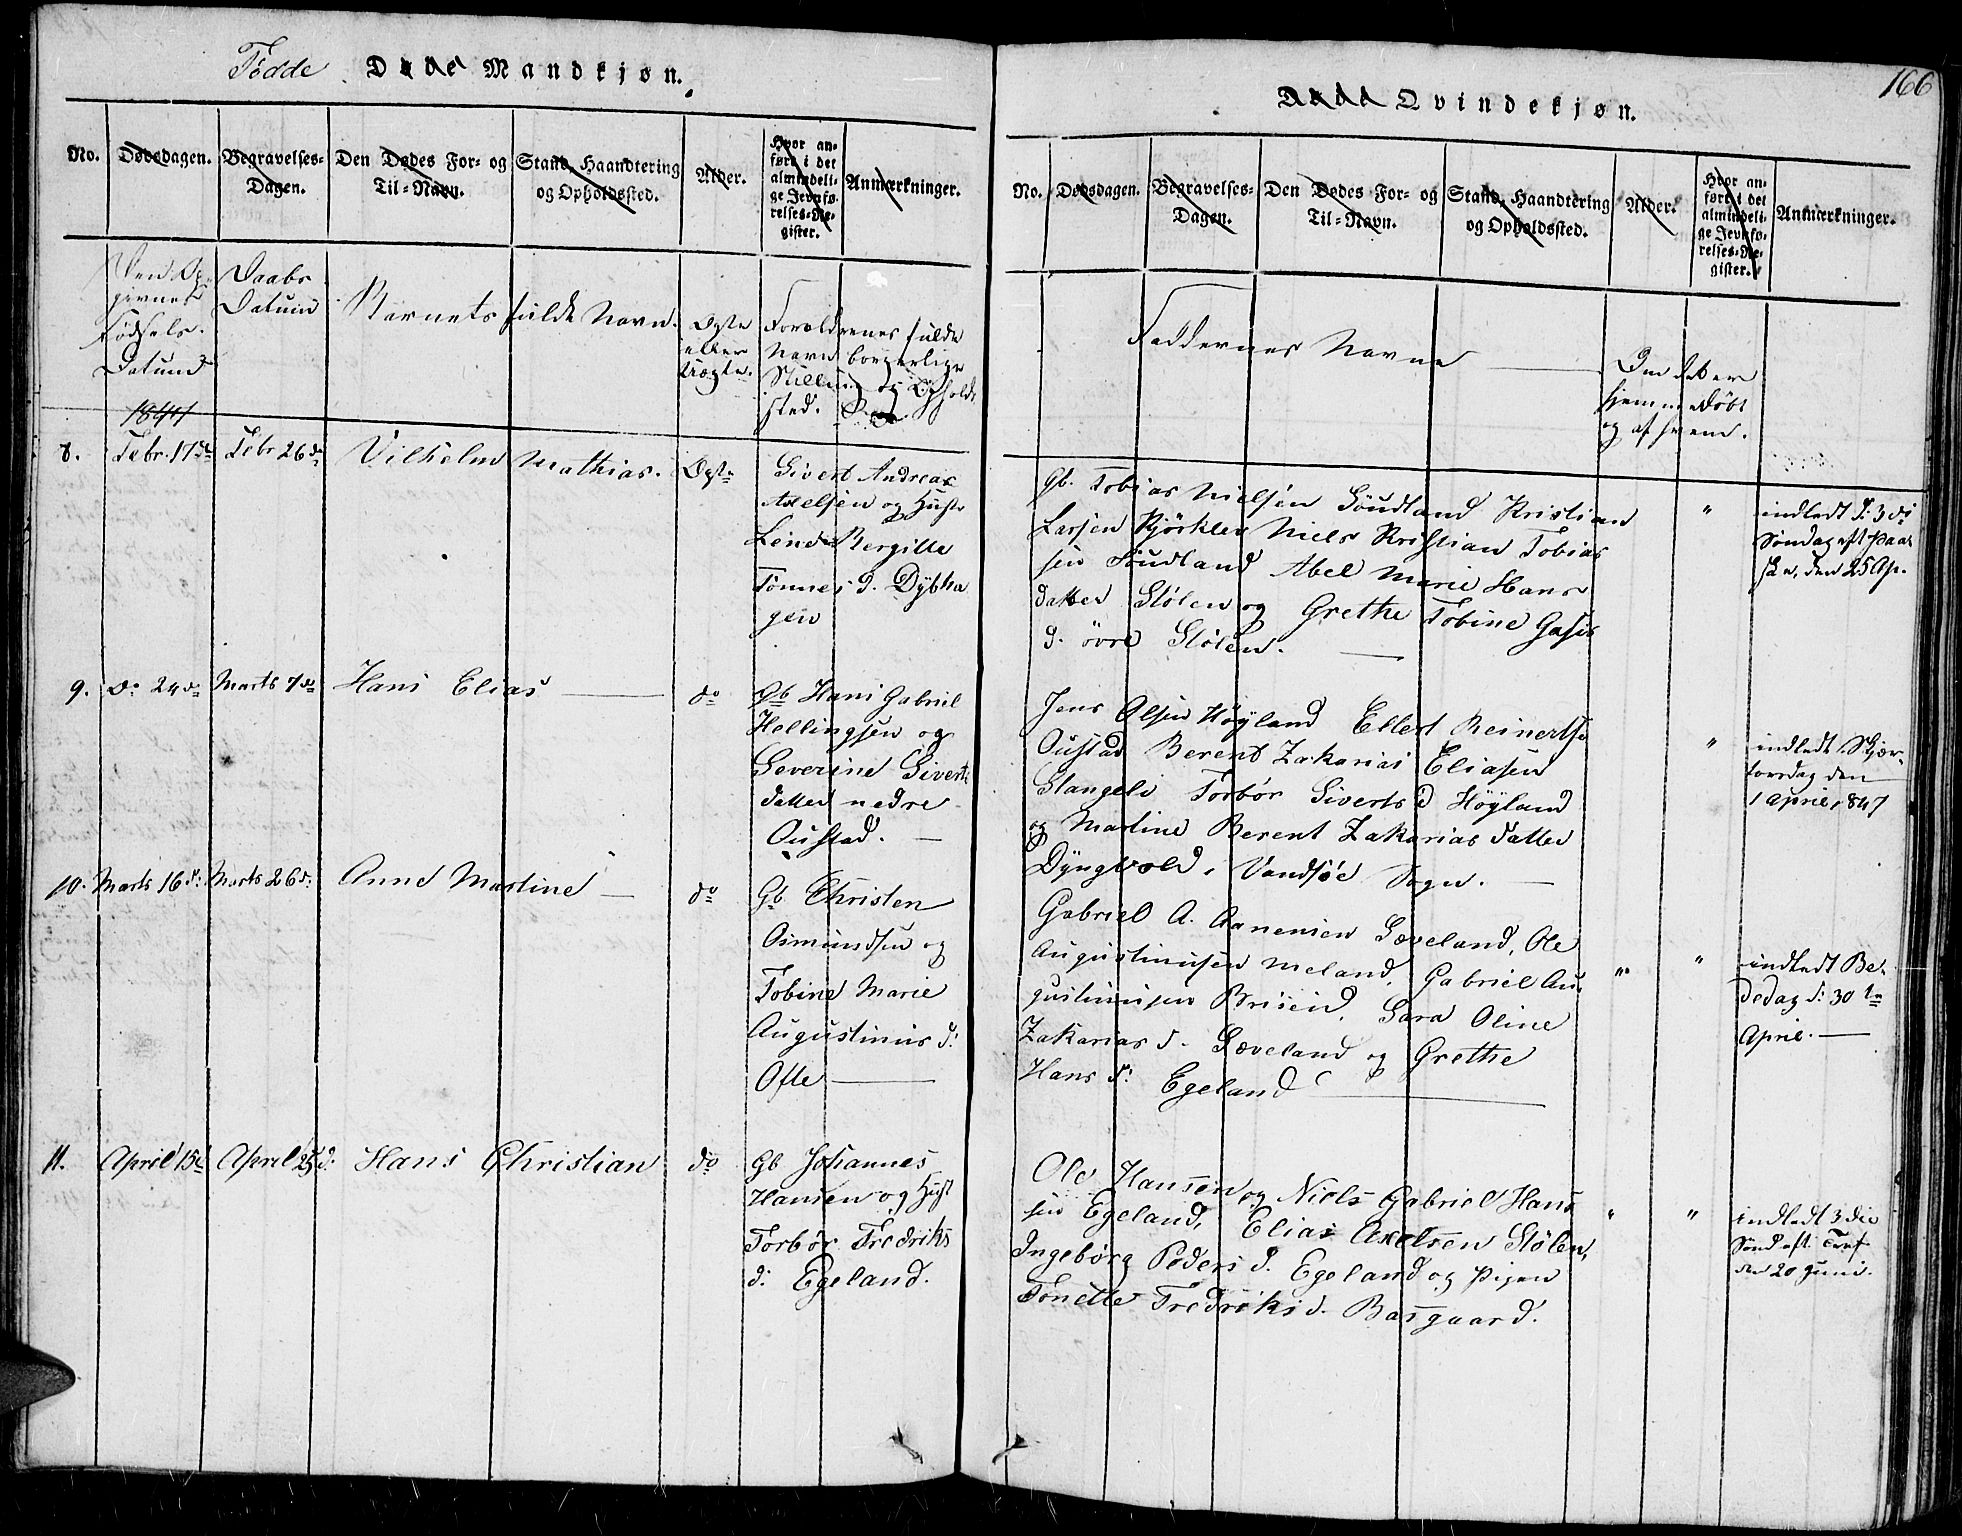 Fødde Døde Mandkjøn.
No.
Dødsdagen.
Begravelses-
Dagen.
Den Dødes For- og
Til-Navn.
Stand, Haandtering
og Opholdssted.
Alder.
Hvor an-
ført i det
almindeli-
ge Jevnfø-
relses-Re-
gister.
Anmærkninger.
Den Op-
givnes
Fødsels-
Datum
1847
Daabs
Datum
Barnets fulde Navn.
Ægte
eller
Uægte.
Forældrenes fulde
Navn borgerlige
Stilling og Opholds
sted.
8. Febr. 17de Febr 26de Vilhelm Mathias. Ægte
Sivert Andreas
Axelsen og Hustr
Lende Bergitte
Tønnes d. Dybha
gen
9. do 24de Marts 7de Hans Elias do
Gb Hans Gabriel
Hellingsen og
Severine Siverts
datter nedre
Oustad.
10. Marts 16d: Marts 26d: Anne Martine do
Gb Christen
Osmundsen og
Tobine Marie
Augustinus d:
Ofte
11. April 15d April 25d: Hans Christian do
Gb Johannes
Hansen og Hust
Torbør Fredriks
d: Egeland.
166
Døde Qvindekjøn.
No.
Dødsdagen.
Begravelses-
Dagen.
Den Dødes For- og
Til-Navn.
Stand, Haandtering
og Opholdssted.
Alder.
Hvor an-
ført i det
almindeli-
ge Jevnfø-
relses-Re-
gister.
Anmærkninger.
Faddernes Navne
Om det er
hjemmedøbt
og af hvem.
Gb. Tobias Nielsen Søudland Kristian
Larsen Bjørklev Niels Kristian Tobias
sen Søudland Abel Marie Hans
datter Stølen og Grethe Tobine
d. øvre Stølen.
" indledt d: 3die
Søndag eft Paas
ke, den 25 Ap.
Jens Olsen Høyland Ellert Reinertse
Oustad Berent Zakarias Eliasen
Slangeli Torbør Siverts d Høyland
og Martine Berent Zakarias datter
Dyngvold, Vandsøe Sogn.
" indledt Skjær-
torsdag den
1 April 1847
Gabriel A. Aanensen Sæveland, Ole
Augustinusen Meland, Gabriel Au-
gustinusen Briseid, Sara Oline
Zakarias d. Sæveland og Grethe
Hans d: Egeland
" " indledt Be-
dedag d: 30te
April.
Ole Hansen og Niels Gabriel Hans
sen Egeland, Elias Axelsen Stølen,
Ingeborg Peders d. Egeland og Pigen
Tonette Fredriks d. Basgaard.
" " indledt 3die
Sønd eft. Tref
den 20 Juni.